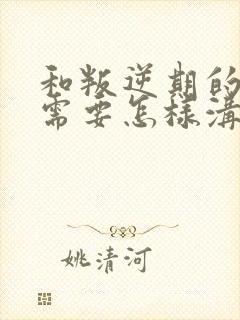 和叛逆期的
需要怎樣溝
姚清河